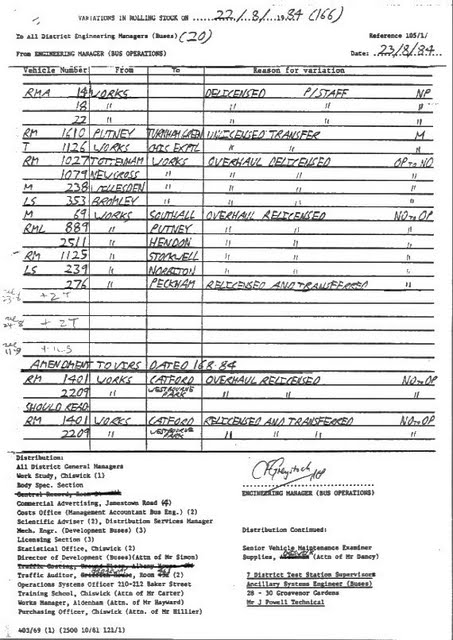 VARIATIONS IN ROLLING STOCK ON 22/8/1984 (166)
To All District Engineering Managers (Buses) (20)
Reference 105/1/
From ENGINEERING MANAGER (BUS OPERATIONS)
Date: 23/8/84
Vehicle Number From To Reason for variation
RMA 14 WORKS DELICENSED P/STAFF NP
18 " " " "
22 " " " "
RM 1610 PUTNEY TURNHAM GREEN UNLICENSED TRANSFER M
T 1126 WORKS CHIS EXPTL " " "
RM 1027 TOTTENHAM WORKS OVERHAUL DELICENSED OP TO NO
1079 NEW CROSS " " " "
M 238 WILLESDEN " " " "
LS 353 BROMLEY " " " "
M 69 WORKS SOUTHALL OVERHAUL RELICENSED NO TO OP
RML 889 " PUTNEY " " "
2511 " HENDON " " "
RM 1125 " STOCKWELL " " "
LS 239 " NORBITON " " "
276 " PECKHAM RELICENSED AND TRANSFERRED "
+ 2T
+ 2T
AMENDMENT TO VIRS DATED 16.8.84
RM 1401 WORKS CATFORD OVERHAUL RELICENSED NO TO OP
2209 " WESTBOURNE PARK " " "
SHOULD READ
RM 1401 WORKS CATFORD RELICENSED AND TRANSFERRED NO TO OP
2209 " WESTBOURNE PARK " " " "
Distribution:
All District General Managers
Work Study, Chiswick (1)
Body Spec. Section
Central Record,
Commercial Advertising, Jamestown Road
Costs Office (Management Accountant Bus Eng.) (2)
Scientific Adviser (2), Distribution Services Manager
Mech. Engr. (Development Buses) (3)
Licensing Section (3)
Statistical Office, Chiswick (2)
Director of Development (Buses)(Attn of Mr Simon)
Traffic Costing,
Traffic Auditor,
Operations Systems Officer 210-212 Baker Street
Training School, Chiswick (Attn of Mr Carter)
Works Manager, Aldenham (Attn. of Mr Hayward)
Purchasing Officer, Chiswick (Attn of Mr Hillier)
403/69 (1) (2500 10/81 121/1)
ENGINEERING MANAGER (BUS OPERATIONS)
Distribution Continued:
Senior Vehicle Maintenance Examiner
Supplies, (Attn of Mr Dancy)
7 District Test Station Supervisors
Ancillary Systems Engineer (Buses)
28 - 30 Grosvenor Gardens
Mr J Powell Technical